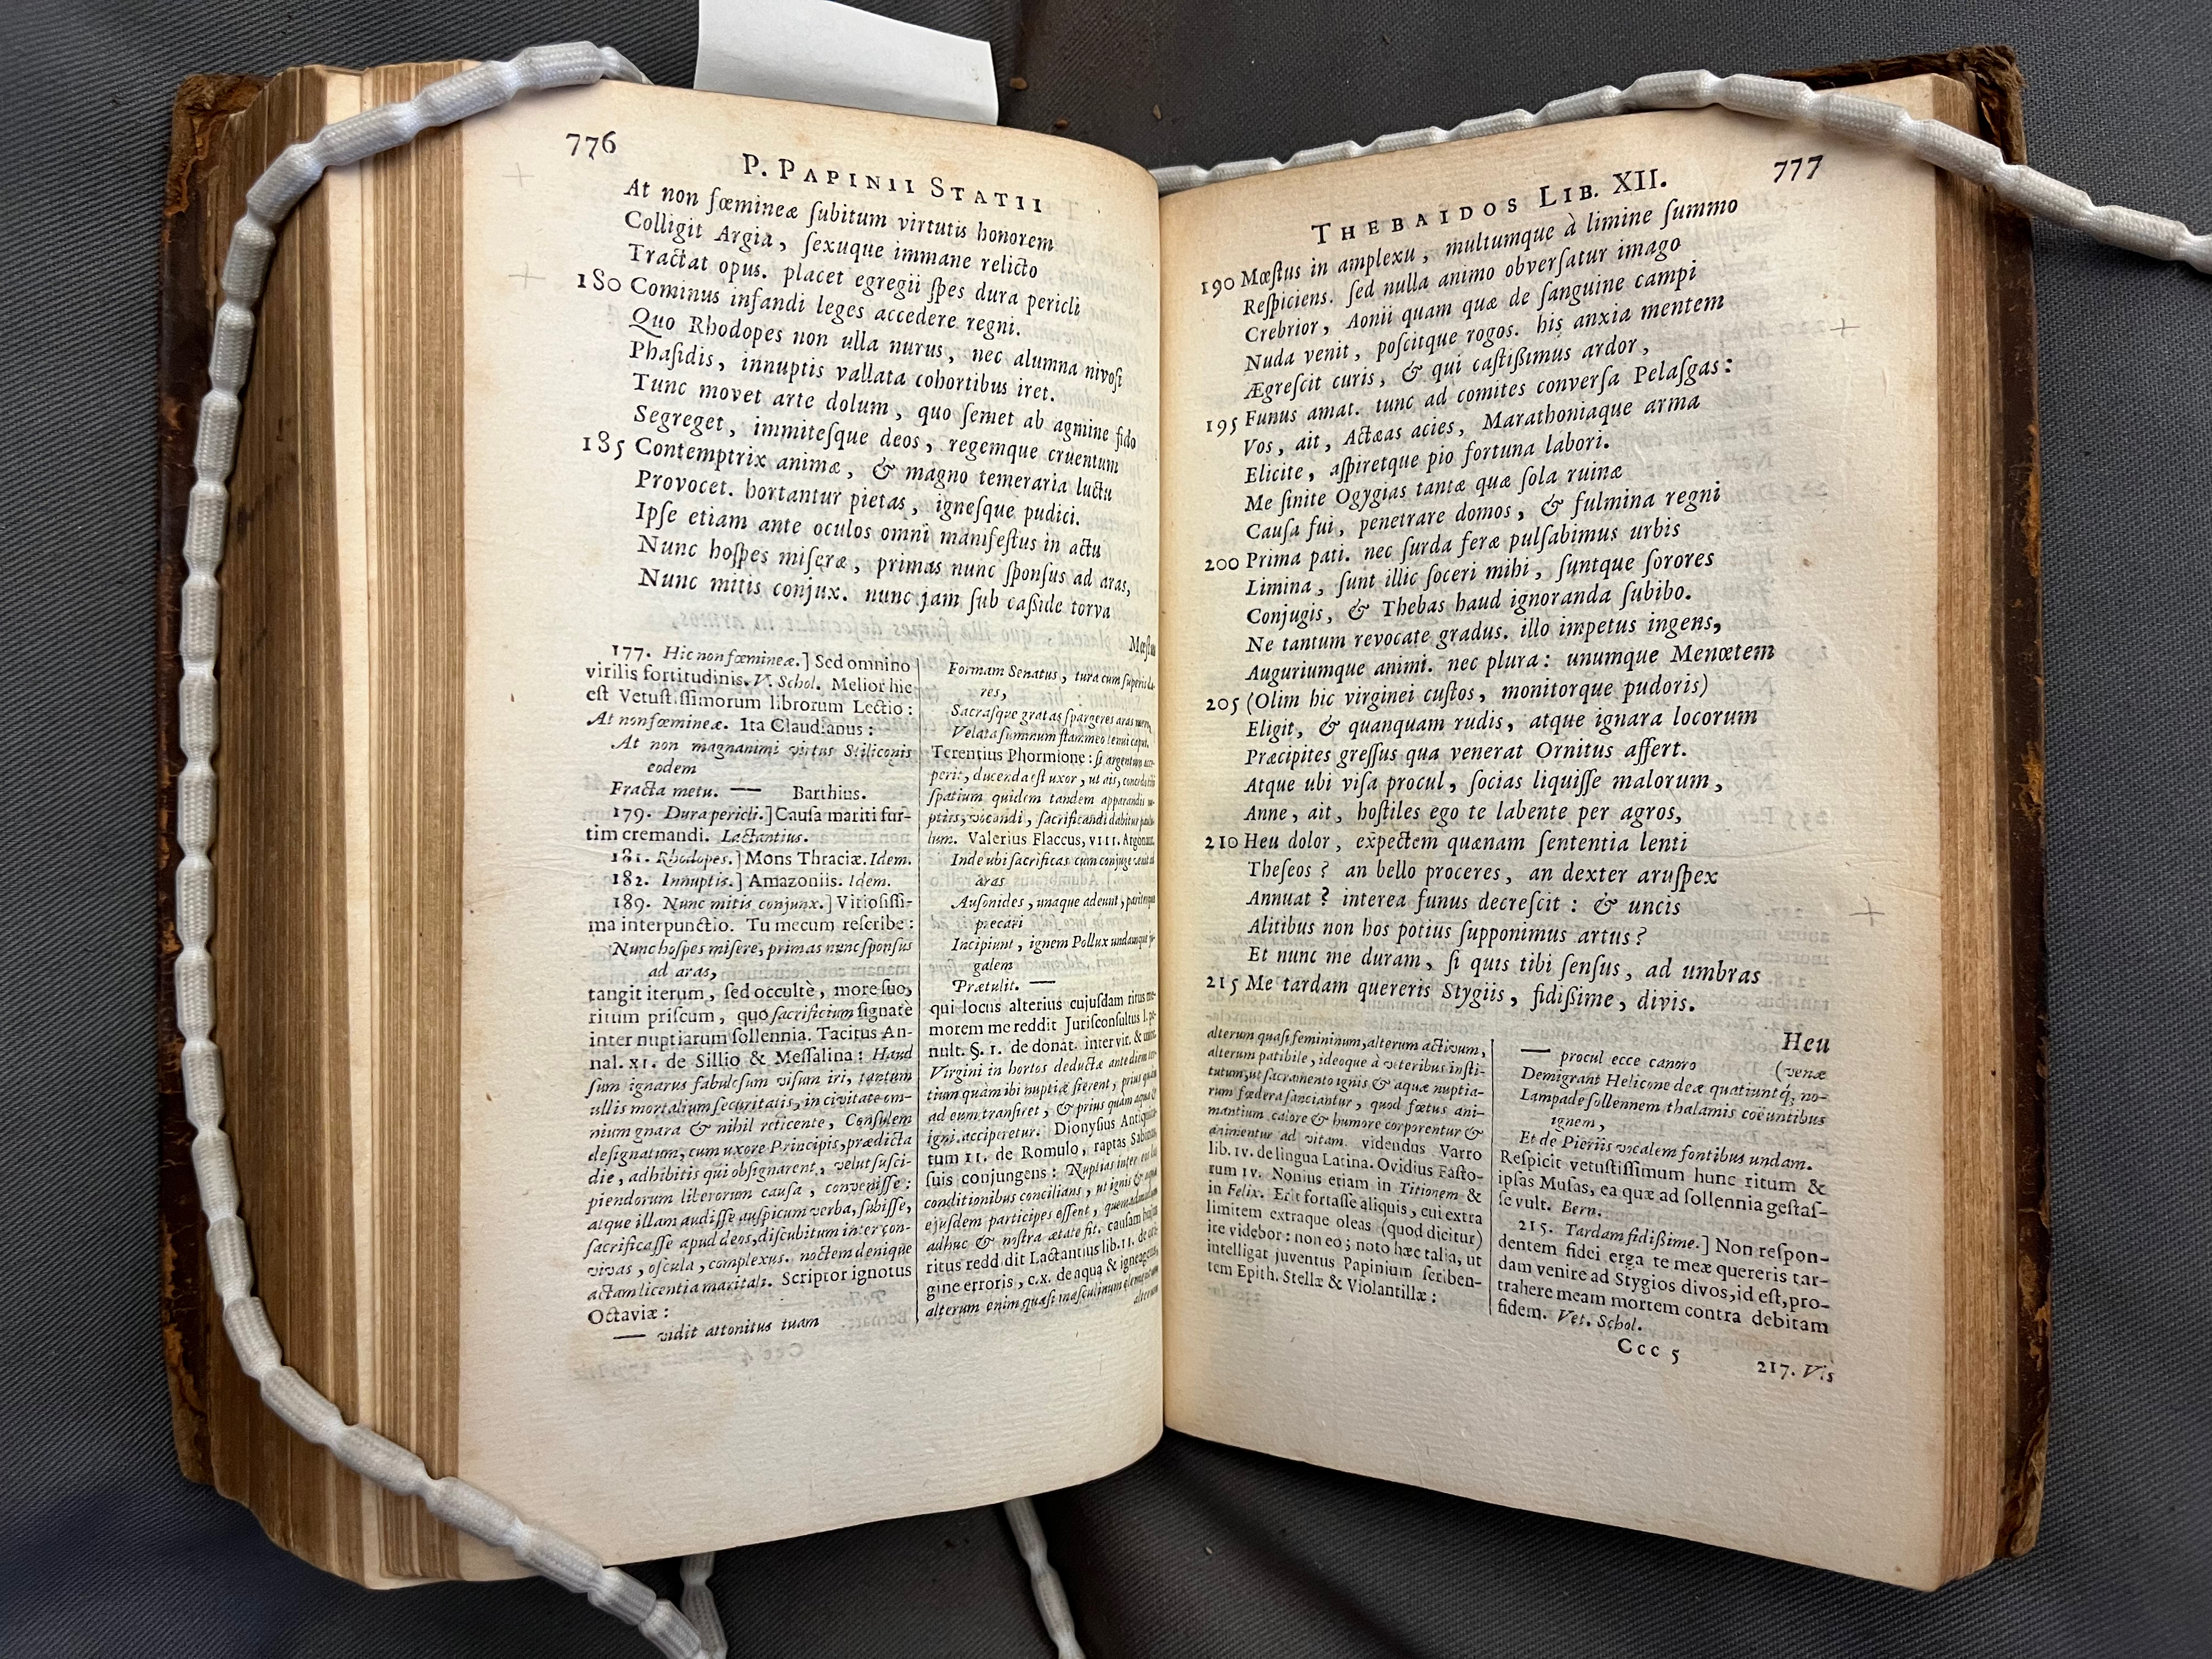 776
P. PAPINII STATII
At non fœmineæ ſubitum virtutis honorem
Colligit Argia, ſexuque immane relicto
Tractat opus. placet egregii ſpes dura pericli
180 Cominus infandi leges accedere regni.
Quo Rhodopes non ulla nurus, nec alumna nivoſi
Phaſidis, innuptis vallata cohortibus iret.
Tunc movet arte dolum, quo ſemet ab agmine fido
Segreget, immiteſque deos, regemque cruentum
185 Contemptrix animæ, & magno temeraria luctu
Provocet. hortantur pietas, igneſque pudici.
Ipſe etiam ante oculos omni manifeſtus in actu
Nunc hoſpes miſeræ, primas nunc ſponſus ad aras,
Nunc mitis conjux. nunc jam ſub caſſide torva
Mœſtus
177. Hic non fœmineæ.] Sed omnino
virilis fortitudinis. V. Schol. Melior hic
eſt Vetuſtiſſimorum librorum Lectio:
At non fœmineæ. Ita Claudianus:
At non magnanimi virtus Stiliconis
eodem
Fracta metu. — Barthius.
179. Dura pericli.] Cauſa mariti fur-
tim cremandi. Lactantius.
181. Rhodopes.] Mons Thraciæ. Idem.
182. Innuptis.] Amazoniis. Idem.
189. Nunc mitis conjunx.] Vitioſiſſi-
ma interpunctio. Tu mecum reſcribe:
Nunc hoſpes miſere, primas nunc ſponſus
ad aras,
tangit iterum, ſed occultè, more ſuo,
ritum priſcum, quo ſacrificium ſignatè
inter nuptiarum ſollennia. Tacitus An-
nal. XI. de Sillio & Meſſalina: Haud
ſum ignarus fabuloſum viſum iri, tantum
ullis mortalium ſecuritatis, in civitate om-
nium gnara & nihil reticente, Conſulem
deſignatum, cum uxore Principis, prædicta
die, adhibitis qui obſignarent, velut ſuſci-
piendorum liberorum cauſa, conveniſſe:
atque illam audiſſe auſpicum verba, ſubiſſe,
ſacrificaſſe apud deos, diſcubitum inter con-
vivas, oſcula, complexus. noctem denique
actam licentia maritali. Scriptor ignotus
Octaviæ:
— vidit attonitus tuam
Formam Senatus, tura cum ſuperis da-
res,
Sacraſque gratas ſpargeres aras mero,
Velata ſummum flammeo tenui caput.
Terentius Phormione: ſi argentum acce-
perit, ducenda eſt uxor, ut ais, concedas tibi
ſpatium quidem tandem apparandis nu-
ptiis, vocandi, ſacrificandi dabitur paulu-
lum. Valerius Flaccus, VIII. Argonaut.
Inde ubi ſacrificas cum conjuge venit ad
aras
Auſonides, unaque adeunt, pariterque
precari
Incipiunt, ignem Pollux undamque ju-
galem
Prætulit. —
qui locus alterius cujuſdam ritus me-
morem me reddit Juriſconſultus l. pe-
nult. §. 1. de donat. inter vir. & uxor.
Virgini in hortos deductæ ante diem ter-
tium quàm ibi nuptiæ fierent, prius quàm
ad eum tranſiret, & prius quàm aqua &
igni acciperetur. Dionyſius Antiquita-
tum II. de Romulo, raptas Sabinas
ſuis conjungens: Nuptias inter eos
conditionibus concilians, ut ignis & aquæ
ejuſdem participes eſſent, quemadmodum
adhuc & noſtra ætate fit. cauſam hujus
ritus reddit Lactantius lib. II. de ori-
gine erroris, c. X. de aqua & igne agens,
alterum enim quaſi maſculinum elementum
alterum
THEBAIDOS LIB. XII. 777
190 Mœſtus in amplexu, multumque à limine ſummo
Reſpiciens. ſed nulla animo obverſatur imago
Crebrior, Aonii quam quæ de ſanguine campi
Nuda venit, poſcitque rogos. his anxia mentem
Ægreſcit curis, & qui caſtißimus ardor,
195 Funus amat. tunc ad comites converſa Pelaſgas:
Vos, ait, Actæas acies, Marathoniaque arma
Elicite, aſpiretque pio fortuna labori.
Me ſinite Ogygias tantæ quæ ſola ruinæ
Cauſa fui, penetrare domos, & fulmina regni
200 Prima pati. nec ſurda feræ pulſabimus urbis
Limina, ſunt illic ſoceri mihi, ſuntque ſorores
Conjugis, & Thebas haud ignoranda ſubibo.
Ne tantum revocate gradus. illo impetus ingens,
Auguriumque animi. nec plura: unumque Menœtem
205 (Olim hic virginei cuſtos, monitorque pudoris)
Eligit, & quanquam rudis, atque ignara locorum
Præcipites greſſus qua venerat Ornitus affert.
Atque ubi viſa procul, ſocias liquiſſe malorum,
Anne, ait, hoſtiles ego te labente per agros,
210 Heu dolor, expectem quænam ſententia lenti
Theſeos? an bello proceres, an dexter aruſpex
Annuat? interea funus decreſcit: & uncis
Alitibus non hos potius ſupponimus artus?
Et nunc me duram, ſi quis tibi ſenſus, ad umbras
215 Me tardam quereris Stygiis, fidißime, divis.
Heu
alterum quaſi femininum, alterum activum,
alterum patibile, ideoque à veteribus inſti-
tutum, ut ſacramento ignis & aquæ nuptia-
rum fœdera ſanciantur, quod fœtus ani-
mantium calore & humore corporentur &
animentur ad vitam. videndus Varro
lib. IV. de lingua Latina. Ovidius Faſto-
rum IV. Nonius etiam in Titionem &
in Felix. Erit fortaſſe aliquis, cui extra
limitem extraque oleas (quod dicitur)
ire videbor: non eo; noto hæc talia, ut
intelligat juventus Papinium ſcriben-
tem Epith. Stellæ & Violantillæ:
— procul ecce canoro
Demigrant Helicone deæ quatiuntq́, no- (venæ
Lampade ſollennem thalamis coëuntibus
ignem,
Et de Pieriis vocalem fontibus undam.
Reſpicit vetuſtiſſimum hunc ritum &
ipſas Muſas, ea quæ ad ſollennia geſtaſ-
ſe vult. Bern.
215. Tardam fidißime.] Non reſpon-
dentem fidei erga te meæ quereris tar-
dam venire ad Stygios divos, id eſt, pro-
trahere meam mortem contra debitam
fidem. Vet. Schol.
Ccc 5
217. Vis